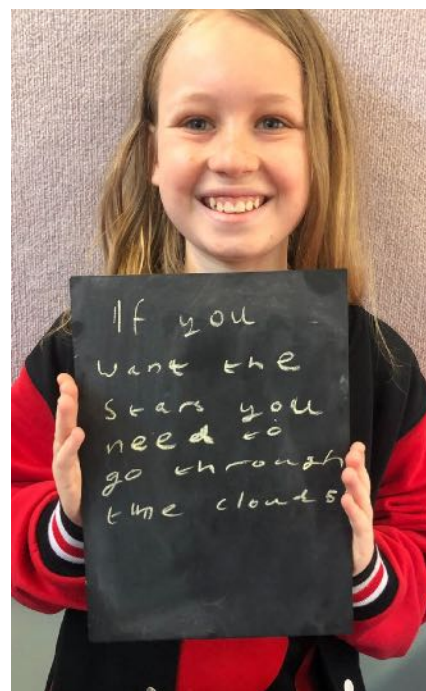 If you
want the
stars you
need to
go through
the clouds